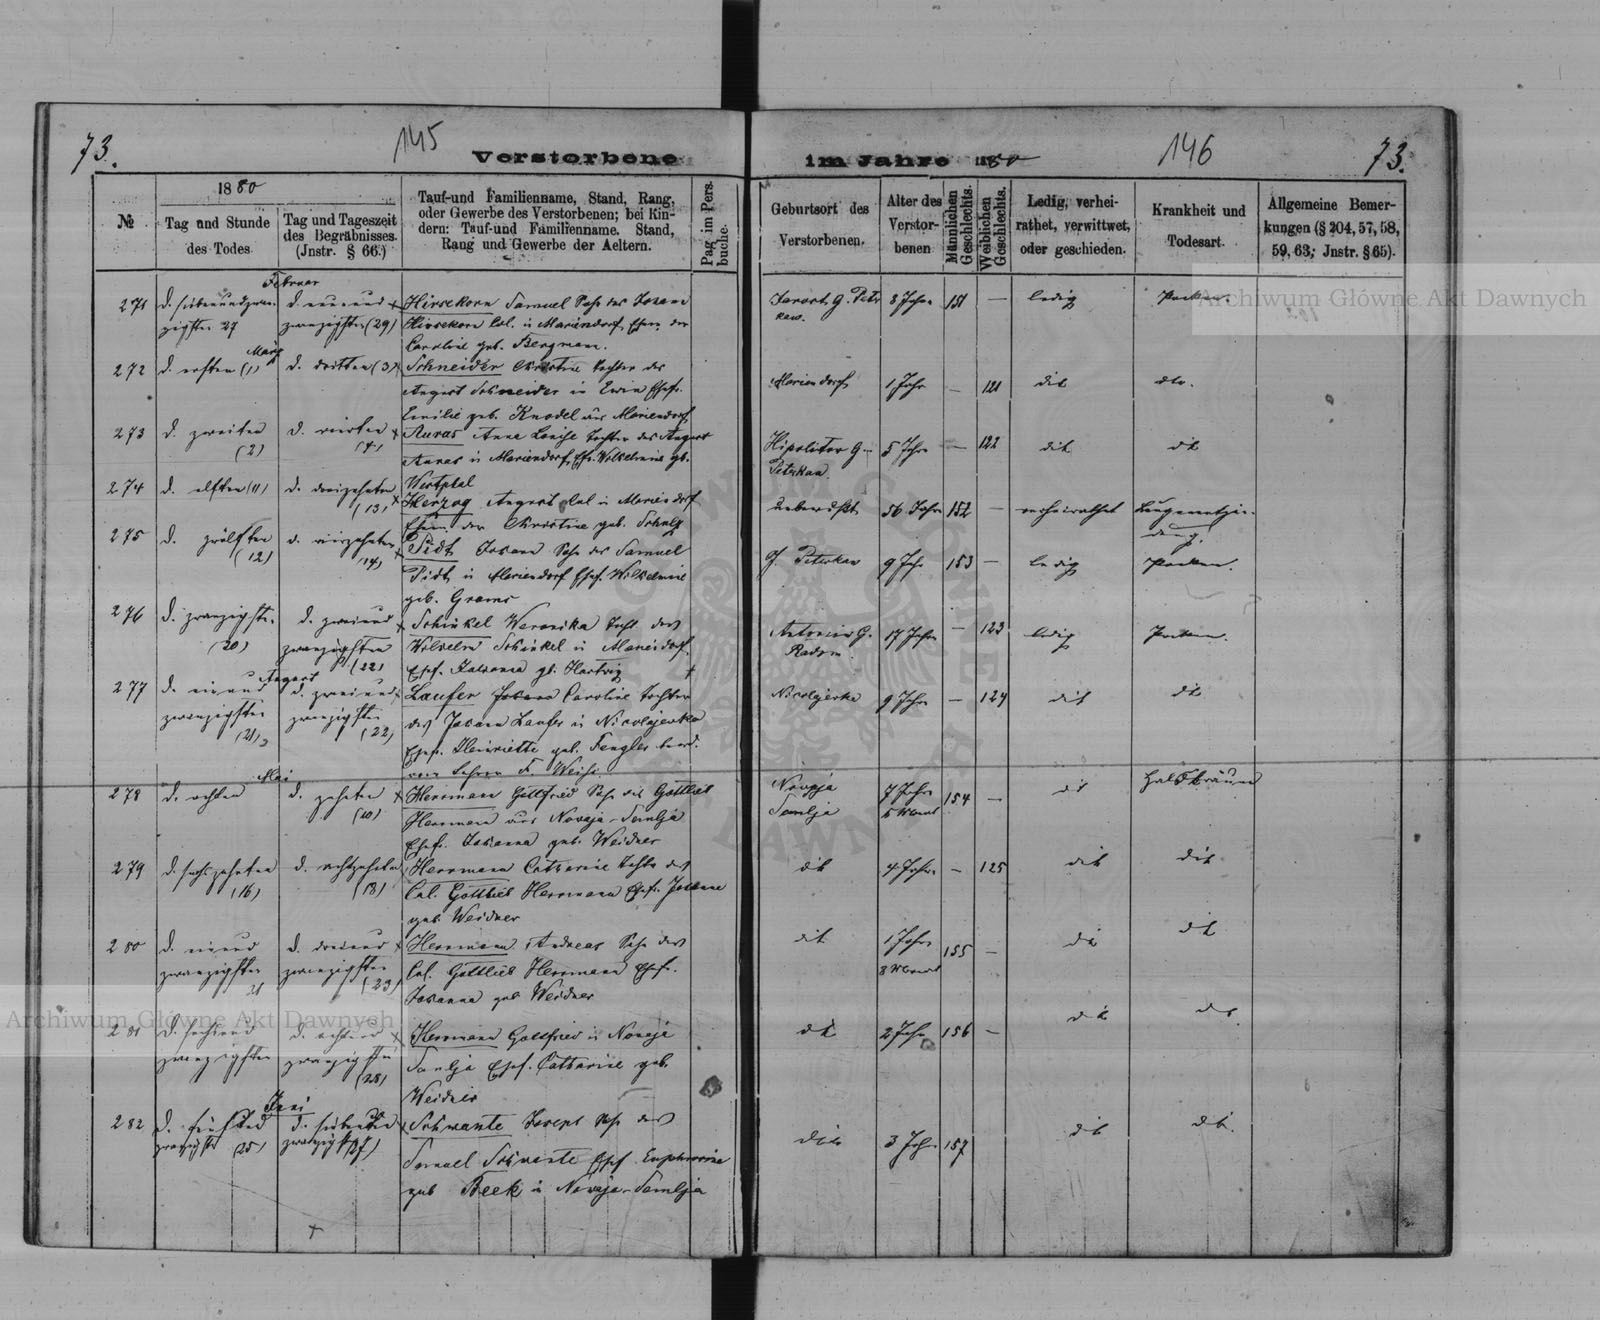 73.
145
Verstorbene
im Jahre 1880
146
73.
№
1880
Tag und Stunde
des Todes.
Tag und Tageszeit
des Begräbnisses.
(Jnstr. § 66.)
Tauf-und Familienname, Stand, Rang,
oder Gewerbe des Verstorbenen; bei Kin-
dern: Tauf-und Familienname. Stand,
Rang und Gewerbe der Aeltern.
Pag. im Pers.
buche.
Geburtsort des
Verstorbenen.
Alter des
Verstor-
benen
Männlichen
Geschlechts.
Weiblichen
Geschlechts.
Ledig, verhei-
rathet, verwittwet,
oder geschieden.
Krankheit und
Todesart.
Allgemeine Bemer-
kungen (§ 204, 57, 58,
59, 63; Jnstr. § 65).
Februar
271 d. siebenundzwan-
zigsten 27
d. neunund
zwanzigsten (29)
Hirsekorn Samuel Sohn des Johann
Hirsekorn Col. in Mariendorf, Ehem. der
Caroline geb. Bergmann.
8 Jahre 151 — ledig Pocken.
März
272 d. ersten (1) d. dritten (3)
Schneider Christine Tochter des
August Schneider in Ehefr.
Emilie geb. Knodel aus Mariendorf
Mariendorf 1 Jahr — 121 dit dto.
273 d. zweiten
(2)
d. vierten
(4)
Auras Anna Louise Tochter des August
Auras in Mariendorf, Ehfr. Wilhelmine gb.
Westphal
Hipolitow G.
Petrkau
5 Jahre — 122 dit dit
274 d. elften (11) d. dreizehnten
(13)
Herzog August Col. in Mariendorf
Ehem. der Christine geb. Schulz
unbewußt 56 Jahre 152 — verheirathet Lungenentzün-
dung.
275 d. zwölften
(12)
d. vierzehnten
(14)
Tidt Johann Sohn des Samuel
Tidt in Mariendorf Ehef. Wilhelmine
geb. Grams
G. Peterkau 9 Jahr 153 — ledig Pocken.
276 d. zwanzigsten
(20)
d. zweiund
zwanzigsten
(22)
Schinkel Weronika Tocht. des
Wilhelm Schinkel in Mariendorf.
Ehef. Johanna gb. Hartwig
Antoniew G.
Radom.
17 Jahre — 123 ledig Pocken.
August
277 d. einund
zwanzigsten
(21)
d. zweiund
zwanzigsten
(22)
Laufer Johanna Caroline Tochter
des Johann Laufer in Nicolajewka
Ehefr. Henriette geb. Fengler beerd.
vom Lehrer F. Weihs.
Nicolajewka 9 Jahre — 124 dit dit
Mai
278 d. achten d. zehnten
(10)
Herrmann Gottfried Sohn des Gottlieb
Herrmann aus Novaja-Semlja
Ehef. Johanna geb. Weidner
Novaja
Semlja
7 Jahre
5 Monat
154 — dit Halsbräune
279 d. sechszehnten
(16)
d. achtzehnten
(18)
Herrmann Catharine Tochter des
Col. Gottlieb Herrmann Ehef. Johanna
geb. Weidner
dit 4 Jahre — 125 dit dit
280 d. einund
zwanzigsten
21
d. dreiund
zwanzigsten
(23)
Herrmann Andreas Sohn des
Col. Gottlieb Herrmann Ehefr.
Johanna geb. Weidner
dit 1 Jahr
8 Monat
155 — dit dit
281 d. sechsund
zwanzigsten
d. achtund
zwanzigsten
(28)
Herrmann Gottfried in Novaja
Semlja Ehef. Catharine geb.
Weidner
dit 2 Jahr 156 — dit dit
Juni
282 d. fünfund
zwanzigst. (25)
d. siebenund
zwanzigst (27)
Schwante Joseph Sohn des
Samuel Schwante Ehef. Euphrosine
geb Beek in Novaja-Semlja
dito 3 Jahr 157 dit dit.
Archiwum Główne Akt Dawnych
Archiwum Główne Akt Dawnych